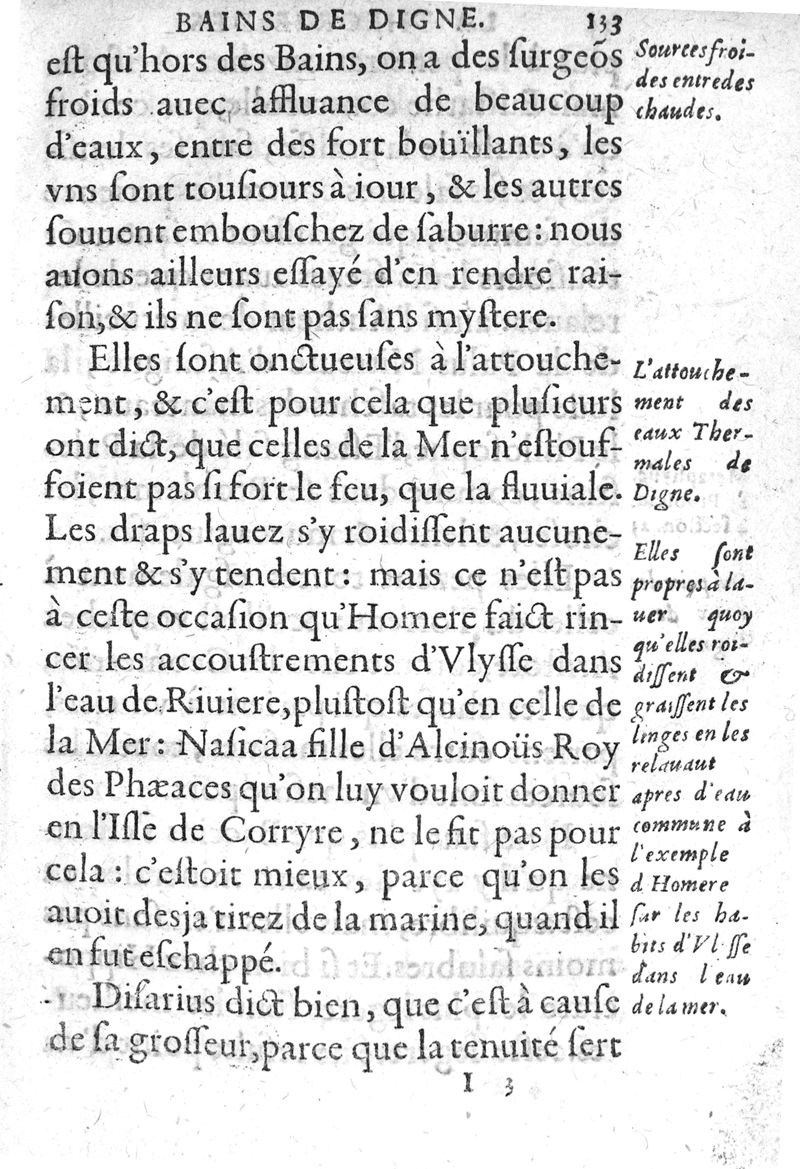 BAINS DE DIGNE. 133
eſt qu'hors des Bains, on a des ſurgeõs
froids auec affluance de beaucoup
d'eaux, entre des fort bouïllants, les
vns ſont touſiours à iour, & les autres
ſouuent embouſchez de ſaburre : nous
auons ailleurs eſſayé d'en rendre rai-
ſon, & ils ne ſont pas ſans myſtere.
Elles ſont onctueuſes à l'attouche-
ment, & c'eſt pour cela que pluſieurs
ont dict, que celles de la Mer n'eſtouf-
foient pas ſi fort le feu, que la fluuiale.
Les draps lauez s'y roidiſſent aucune-
ment & s'y tendent : mais ce n'eſt pas
à ceſte occaſion qu'Homere faict rin-
cer les accouſtrements d'Vlyſſe dans
l'eau de Riuiere, pluſtoſt qu'en celle de
la Mer : Naſicaa fille d'Alcinoüs Roy
des Phæaces qu'on luy vouloit donner
en l'Iſle de Corryre, ne le fit pas pour
cela : c'eſtoit mieux, parce qu'on les
auoit desja tirez de la marine, quand il
en fut eſchappé.
Diſarius dict bien, que c'eſt à cauſe
de ſa groſſeur, parce que la tenuité ſert
I 3
Sources froi-
des entre des
chaudes.
L'attouche-
ment des
eaux Ther-
males de
Digne.
Elles ſont
propres à la-
uer quoy
qu'elles roi-
diſſent &
graiſſent les
linges en les
relauant
apres d'eau
commune à
l'exemple
d Homere
ſur les ha-
bits d'Vl ſſe
dans l'eau
de la mer.